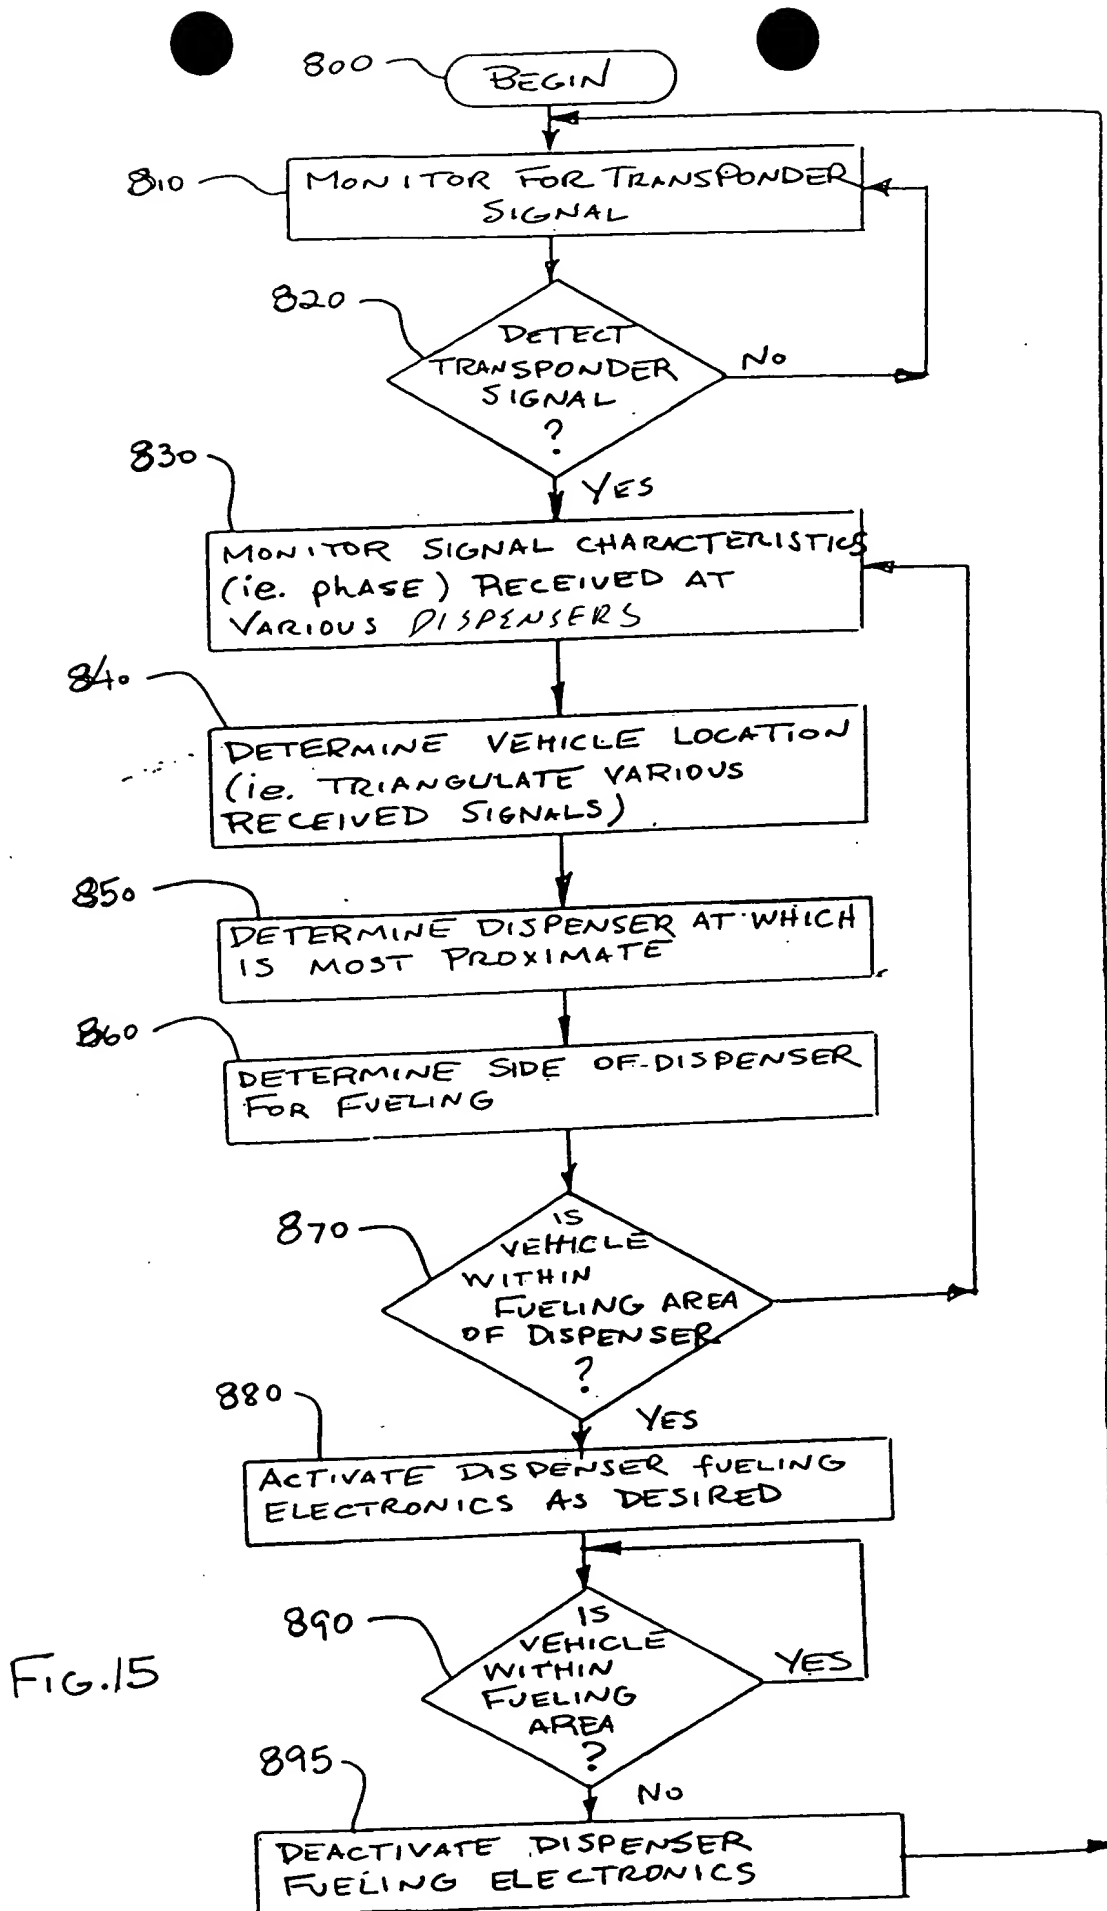 800
BEGIN
810
MONITOR FOR TRANSPONDER
SIGNAL
820
DETECT
TRANSPONDER
SIGNAL
?
No
YES
830
MONITOR SIGNAL CHARACTERISTICS
(ie. phASE) RECEIVED AT
VARIOUS DISPENSERS
840
DETERMINE VEHICLE LOCATION
(ie. TRIANGULATE VARIOUS
RECEIVED SIGNALS)
850
DETERMINE DISPENSER AT WHICH
IS MOST PROXIMATE
860
DETERMINE SIDE OF DISPENSER
FOR FUELING
870
IS
VEHICLE
WITHIN
FUELING AREA
OF DISPENSER
?
YES
880
ACTIVATE DISPENSER fUELING
ELECTRONICS AS DESIRED
890
IS
VEHICLE
WITHIN
FUELING
AREA
?
YES
NO
895
DEACTIVATE DISPENSER
FUELING ELECTRONICS
FIG.15